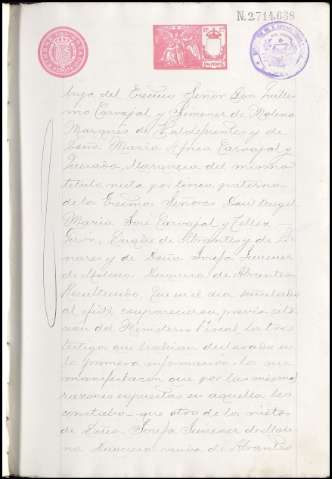 N.2714,638
hija del Excmo Señor Don Guiller
mo Carvajal y Jimenez de Molina
Marques de Valdefuentes y de
Doña Maria Africa Carvajal y
Quesada, Marquesa del mismo
titulo nieta por linea paterna
de los Excmos Señores Don Angel
Maria José Carvajal y Tellez
Giron, Duque de Abrantes y de Li
nares y de Doña Josefa Jimenez
de Molina Duquesa de Abrantes
Resultando, Que en el dia señalado
al efecto comparecieron, previa cita
cion del Ministerio Fiscal los tres
testigos que habian declarado en
la primera informacion la
manifestacion que por las mismas
razones expuestas en aquella les
constaba que otro de los nietos
de Doña Josefa Jimenez de Moli
na Duquesa viuda de Abrantes